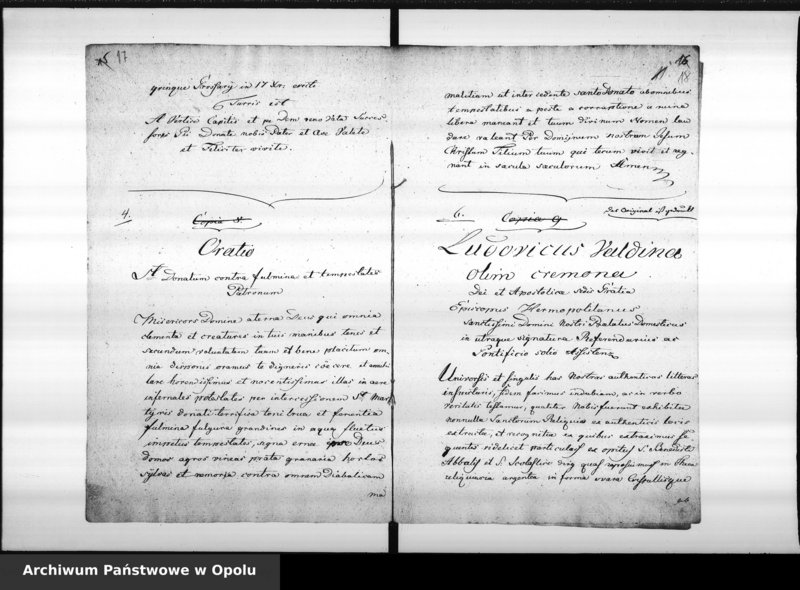 17
quinque Grossary in 17 Xr; erecti
Turris est
A Vertice Capitis et pe
Donate nobis Pater et Ave Valete
et Feliciter vivite.
4.
Copia
Oratio
Ad Donatum contra fulmina et tempestates
Patronum
Misericors Domine aterne Deus qui omnia
clementa et creatures in tuis manibus tenes et
secundum voluntatem tuam et bene placitum om
nia disponis oramus te digneris coercere et
lare horendissimus et nocentissimus illas in aere
infernales potestates per intercessionem St. Mar
tyris donati terrifica tonitrua et
fulmina fulgura grandines in aqua fluctus
impetus tempestates, signa crucis Deus
domos agros vineas prata granaria hortos
sylvas et nemora contra omnem Diabolicam
ma
18
malitiam et intercedente santo Donato abominibus
tempestatibus a peste a corruptione a ruina
libera maneant et tuum divinum Nomen lau
dare valeant Per Dominum nostrum Jesum
Christum Filium tuum qui tecum vivit et reg
nant in sacula saculorum Amen
6.
Copia
das Original ist gedruckt
Ludovicus Valdina
olim cremona
Dei et Apostolica sedis Gratia
Episcopus Hermopolitanus
Sanctissimi Domini Nostri Pralatus Domesticus
in utraque signatura Referendarius ac
Pontificio solio Assistens
Universis et singulis has nostras authenticas litteras
inspecturis, fidem facimus indubiam, ac in verbo
veritatis testamur, qualiter Nobis fuerunt exhibitae
nonnulla Sanctorum Reliquias ex authenticis locis
extracta, et recognitae ex quibus extraximus se
quentes videlicet particulas ex
Abbatis et S. Scolastica
reliquiaria argentea in forma ovata Crystallisque
ab
Archiwum Państwowe w Opolu